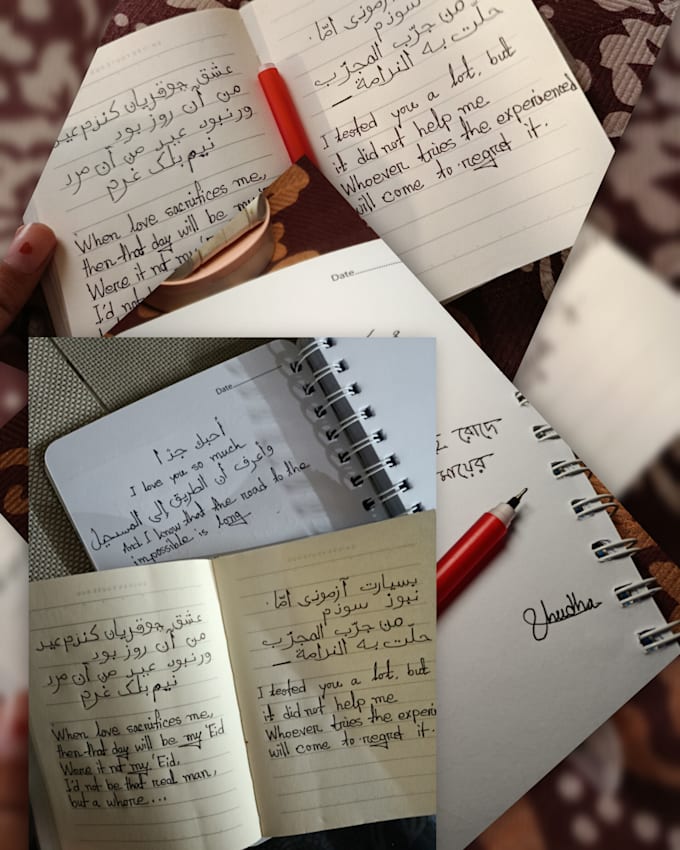 عشق چوقربان کنرم عید
من آن روز بود
ورنبود عید من آن مرد
نیم بلک غرم
When love sacrifices me,
then that day will be my
Were it not my
I'd not
آزمونی امّا.
سوزم
من جرّب المجرّب
حلّت به النرامة —
I tested you a lot, but
it did not help me
Whoever tries the experienced
will come to regret it.
Date
রোদে
মায়ের
Shudha
Date
أحبك جذا
I love you so much
وأعرف أن الطريق إلى المسحيل
And I know that the road to the
impossible is long
عشق چوقربان کنرم عید
من آن روز بود
ورنبود عید من آن مرد
نیم بلک غرم
When love sacrifices me,
then that day will be my 'Eid
Were it not my 'Eid,
I'd not be that real man,
but a whore...
بسیارت آزمونی امّا.
نبوز سوزم
من جرّب المجرّب
حلّت به النرامة —
I tested you a lot, but
it did not help me
Whoever tries the experi
will come to regret it.